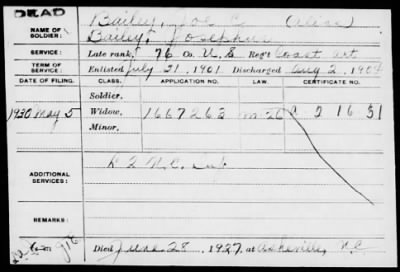 DEAD
Bailey, Joe C. (Alias)
NAME OF SOLDIER: Bailey, Josephus
SERVICE: Late rank, 76 Co. U.S. Reg't Coast Art
TERM OF SERVICE: Enlisted July 21, 1901 Discharged Aug 2, 1904
DATE OF FILING. CLASS. APPLICATION NO. LAW. CERTIFICATE NO.
Soldier.
1930 May 5 Widow, 1667263 A 2 16 31
Minor.
ADDITIONAL SERVICES: L 2 N.C. Inf
REMARKS:
Died June 28, 1927, at Asheville, N.C.